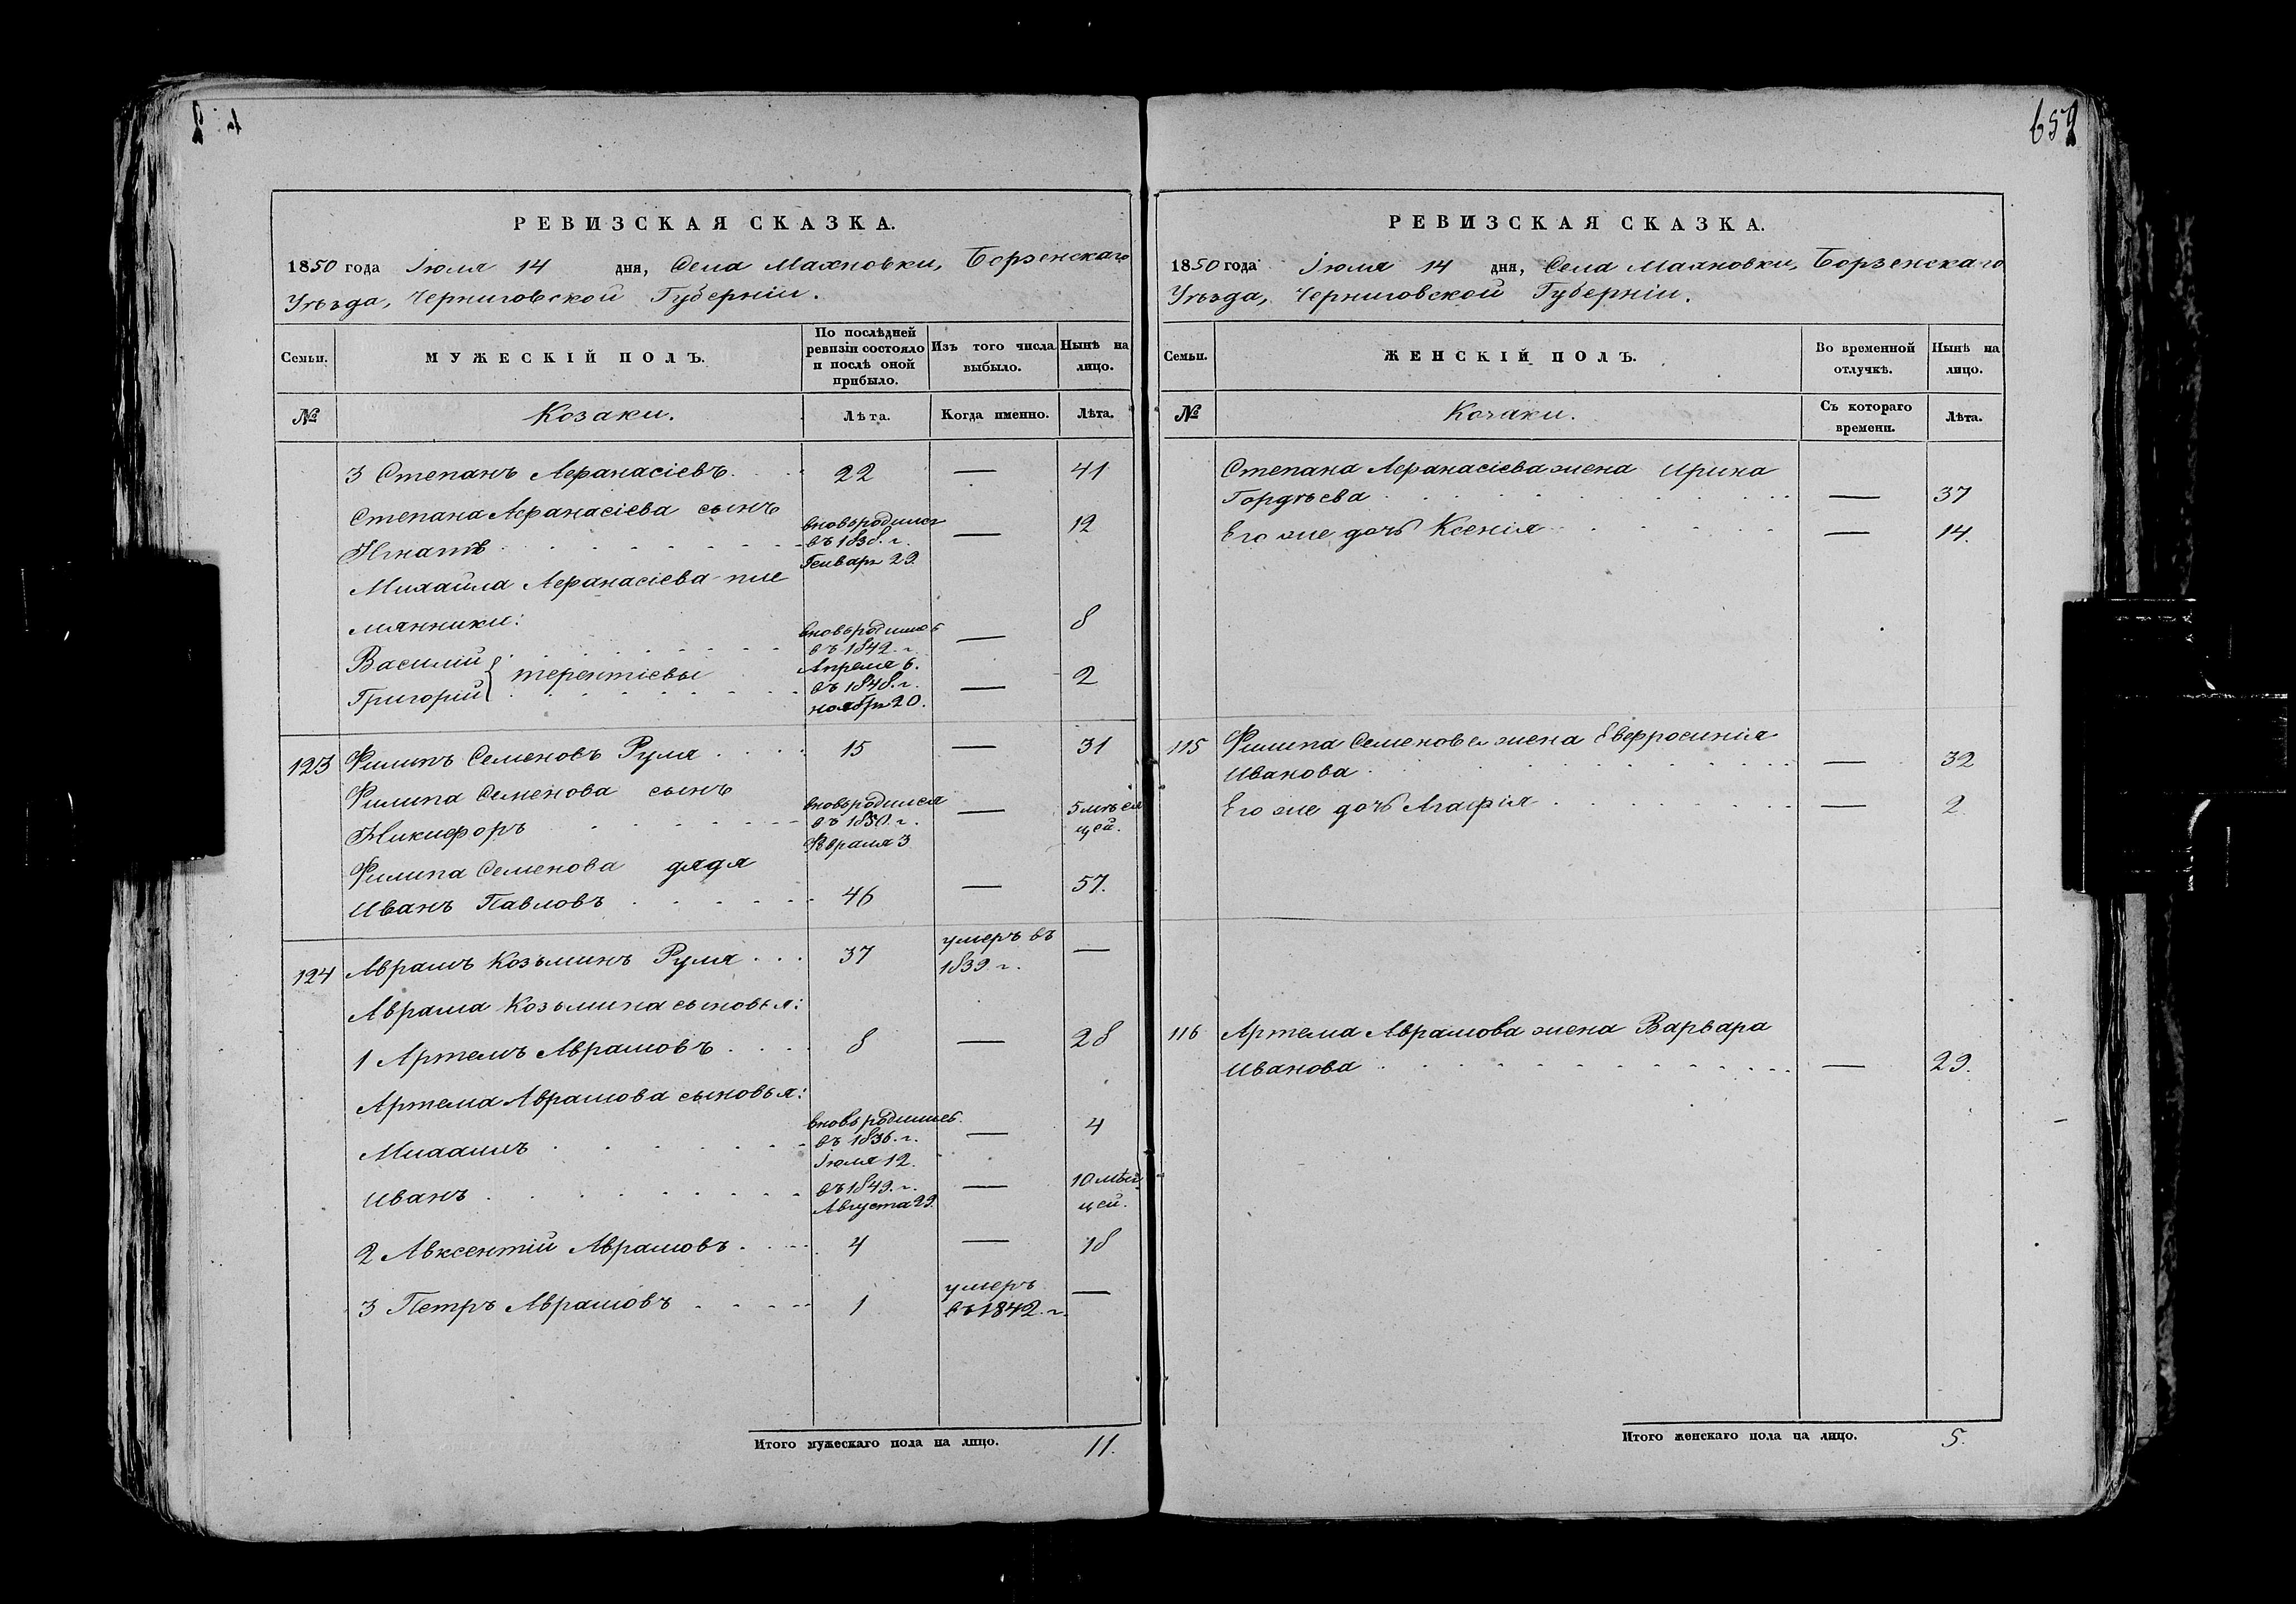 659
РЕВИЗСКАЯ СКАЗКА.
1850 года Іюля 14 дня, Села Махновки, Борзенскаго
Уѣзда, Черниговской Губерніи.
Семьи.
МУЖЕСКІЙ ПОЛЪ.
По послѣдней
ревизіи состояло
и послѣ оной
прибыло.
Изъ того числа
выбыло.
Нынѣ на
лицо.
№
Козаки.
Лѣта.
Когда именно.
Лѣта.
3 Степанъ Афанасіевъ. 22 — 41
Степана Афанасіева сынъ
Игнатъ вновь родился — 12
въ 1838. г.
Генваря 29.
Михайла Афанасіева пле
мянники:
Василій вновь родились — 8
въ 1842. г.
Апреля 6.
Григорій } терентіевы въ 1848. г. — 2
ноября 20.
123 Филипъ Семеновъ Руля 15 — 31
Филипа Семенова сынъ
Никифоръ вновь родился — 5 мѣся
въ 1850. г. цей.
Февраля 3
Филипа Семенова дядя
Иванъ Павловъ 46 — 57.
124 Аврамъ Козьминъ Руля 37 умеръ въ —
1839 г.
Аврама Козьмина сыновья:
1 Артемъ Аврамовъ 8 — 28
Артема Аврамова сыновья:
Михаилъ вновь родились. — 4
въ 1836. г.
Іюля 12.
Иванъ въ 1849. г. — 10 мѣся
Августа 29. цей.
2 Авксентій Аврамовъ 4 — 18
3 Петръ Аврамовъ 1 умеръ —
въ 1842. г.
Итого мужескаго пола на лицо. 11.
РЕВИЗСКАЯ СКАЗКА.
1850 года Іюля 14 дня, Села Махновки, Борзенскаго
Уѣзда, Черниговской Губерніи.
Семьи.
ЖЕНСКІЙ ПОЛЪ.
Во временной
отлучкѣ.
Нынѣ на
лицо.
№
Козаки.
Съ котораго
времени.
Лѣта.
Степана Афанасіева жена Ирина
Гордѣева — 37
Его же дочь Ксенія — 14.
115 Филипа Семенова жена Евфросинія
Иванова — 32
Его же дочь Агафія — 2.
116 Артема Аврамова жена Варвара
Иванова — 29.
Итого женскаго пола на лицо. 5.